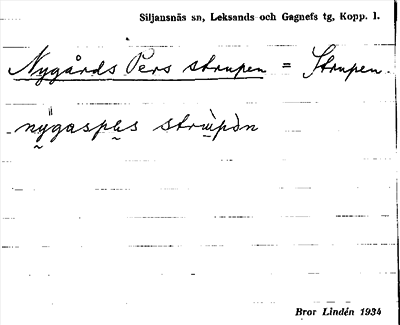 Siljansnäs sn, Leksands och Gagnefs tg, Kopp. l.
Nygårds Pers strupen = Strupen.
nÿgaspas strùpən
Bror Lindén 1934